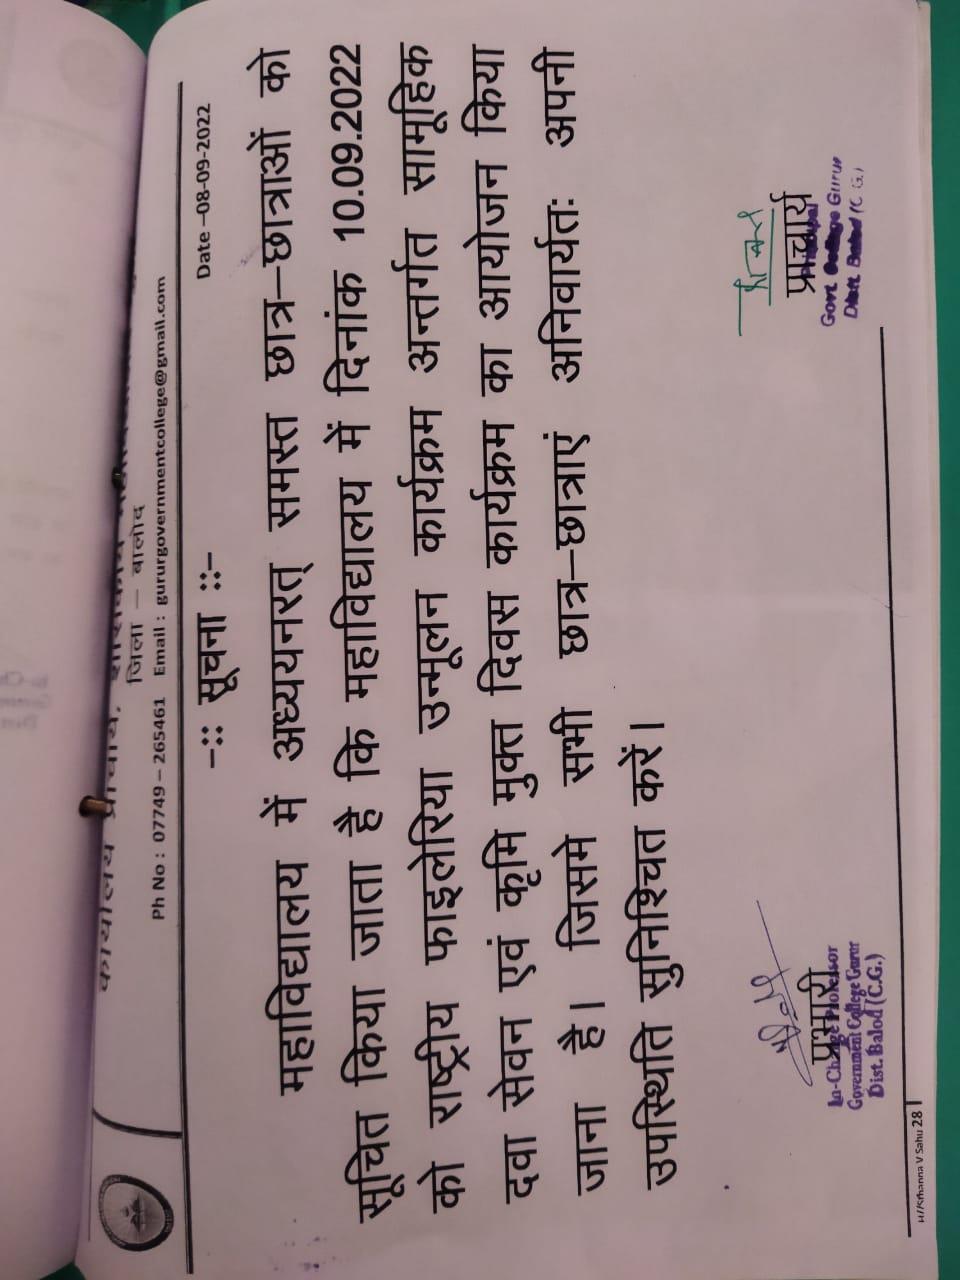 कार्यालय प्राचार्य, शासकीय
जिला – बालोद
Ph No : 07749 – 265461 Email : gururgovernmentcollege@gmail.com
Date –08-09-2022
-:: सूचना ::-
महाविद्यालय में अध्ययनरत् समस्त छात्र–छात्राओं को
सूचित किया जाता है कि महाविद्यालय में दिनांक 10.09.2022
को राष्ट्रीय फाइलेरिया उन्मूलन कार्यक्रम अन्तर्गत सामूहिक
दवा सेवन एवं कृमि मुक्त दिवस कार्यक्रम का आयोजन किया
जाना है। जिसमे सभी छात्र–छात्राएं अनिवार्यतः अपनी
उपस्थिति सुनिश्चित करें।
प्रभारी
In-Charge Professor
Government College Gurur
Dist. Balod (C.G.)
प्राचार्य
Principal
Govt. College Gurur
Distt. Balod (C.G.)
V Sahu 28